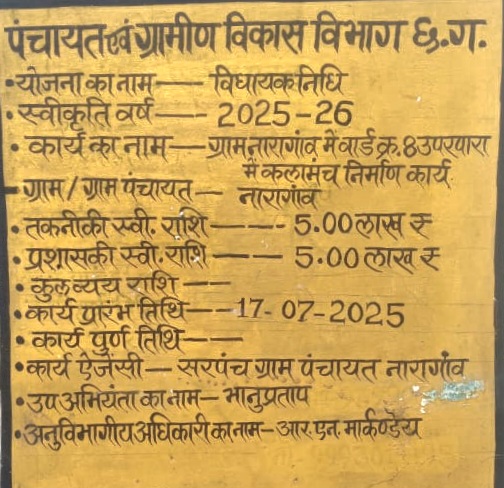 पंचायत एवं ग्रामीण विकास विभाग छ.ग.
• योजना का नाम —— विधायक निधि
• स्वीकृति वर्ष —— 2025-26
• कार्य का नाम — ग्राम नारागांव में वार्ड क्र. 8 उपरपारा
में कलामंच निर्माण कार्य
- ग्राम / ग्राम पंचायत — नारागांव
• तकनीकी स्वी. राशि ——-- 5.00 लाख ₹
• प्रशासकी स्वी. राशि ——— 5.00 लाख ₹
• कुल व्यय राशि ——
• कार्य प्रारंभ तिथि —— 17-07-2025
• कार्य पुर्ण तिथि ——
• कार्य ऐजेंसी — सरपंच ग्राम पंचायत नारागांव
• उप अभियंता का नाम — भानुप्रताप
• अनुविभागीय अधिकारी का नाम — आर.एन. मार्कण्डेय